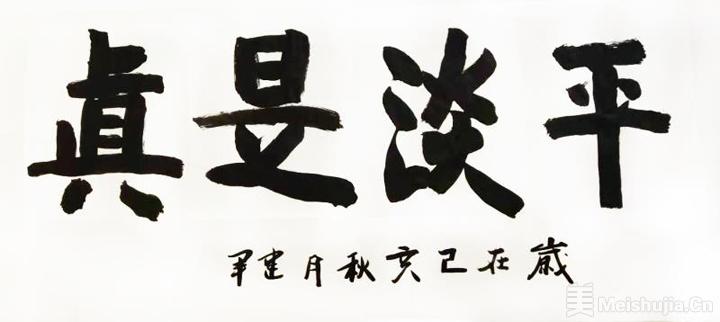 平淡是真
歲在己亥秋月建军
美 Meishujia.Cn